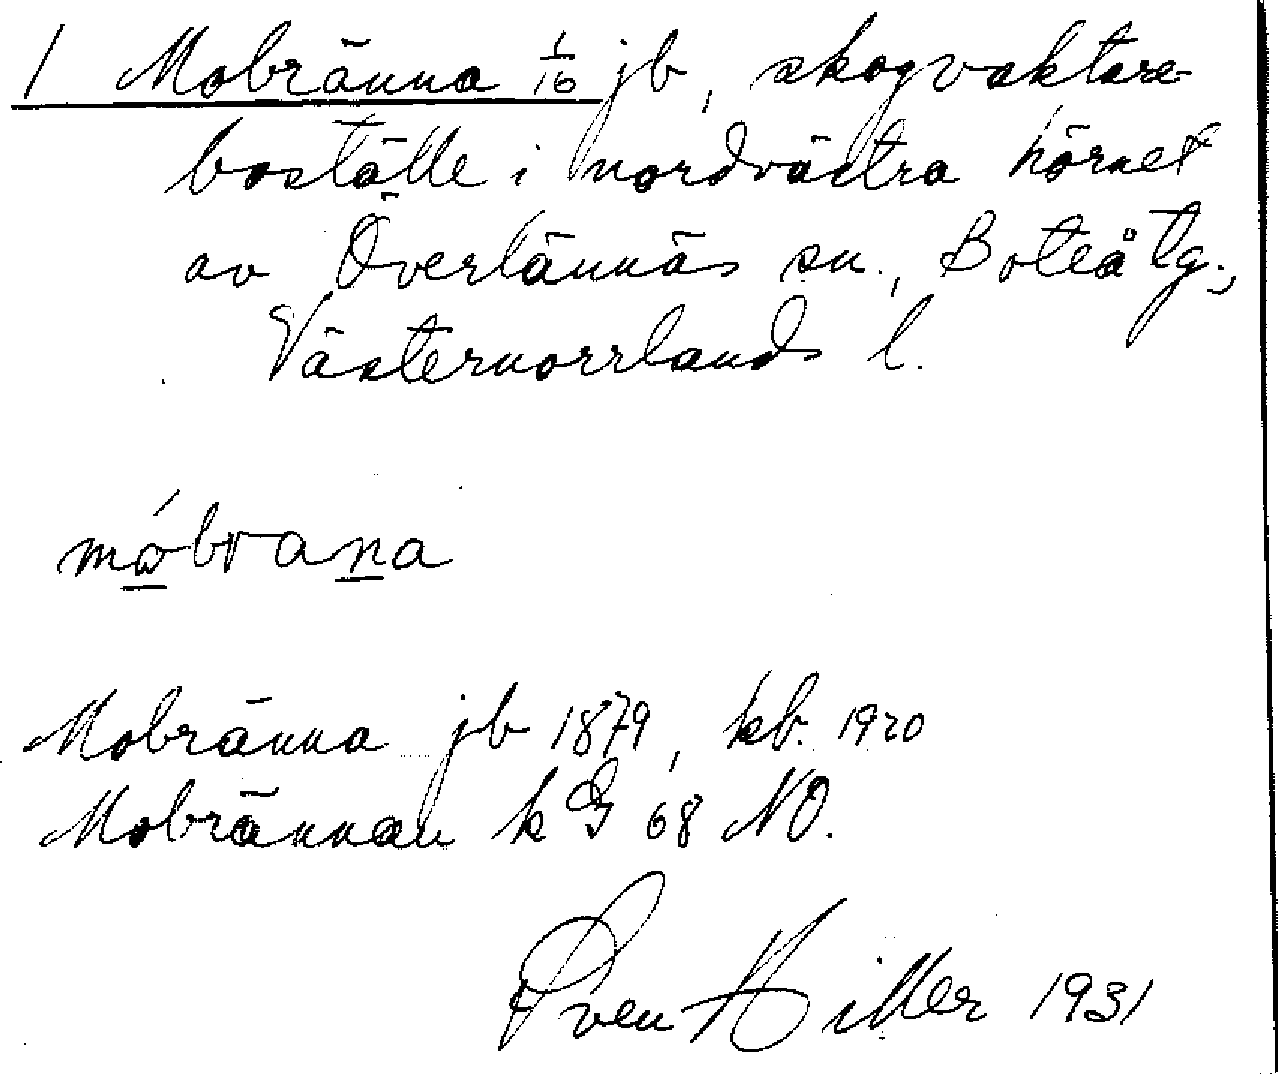 1 Mobränna 1/16 jb, skogvaktare-
boställe i nordvästra hörnet
av Överlännäs sn., Boteå tg.,
Västernorrlands l.
móbrana
Mobränna jb 1879, kb. 1920
Mobrännan k G 68 NO.
Sven Hiller 1931